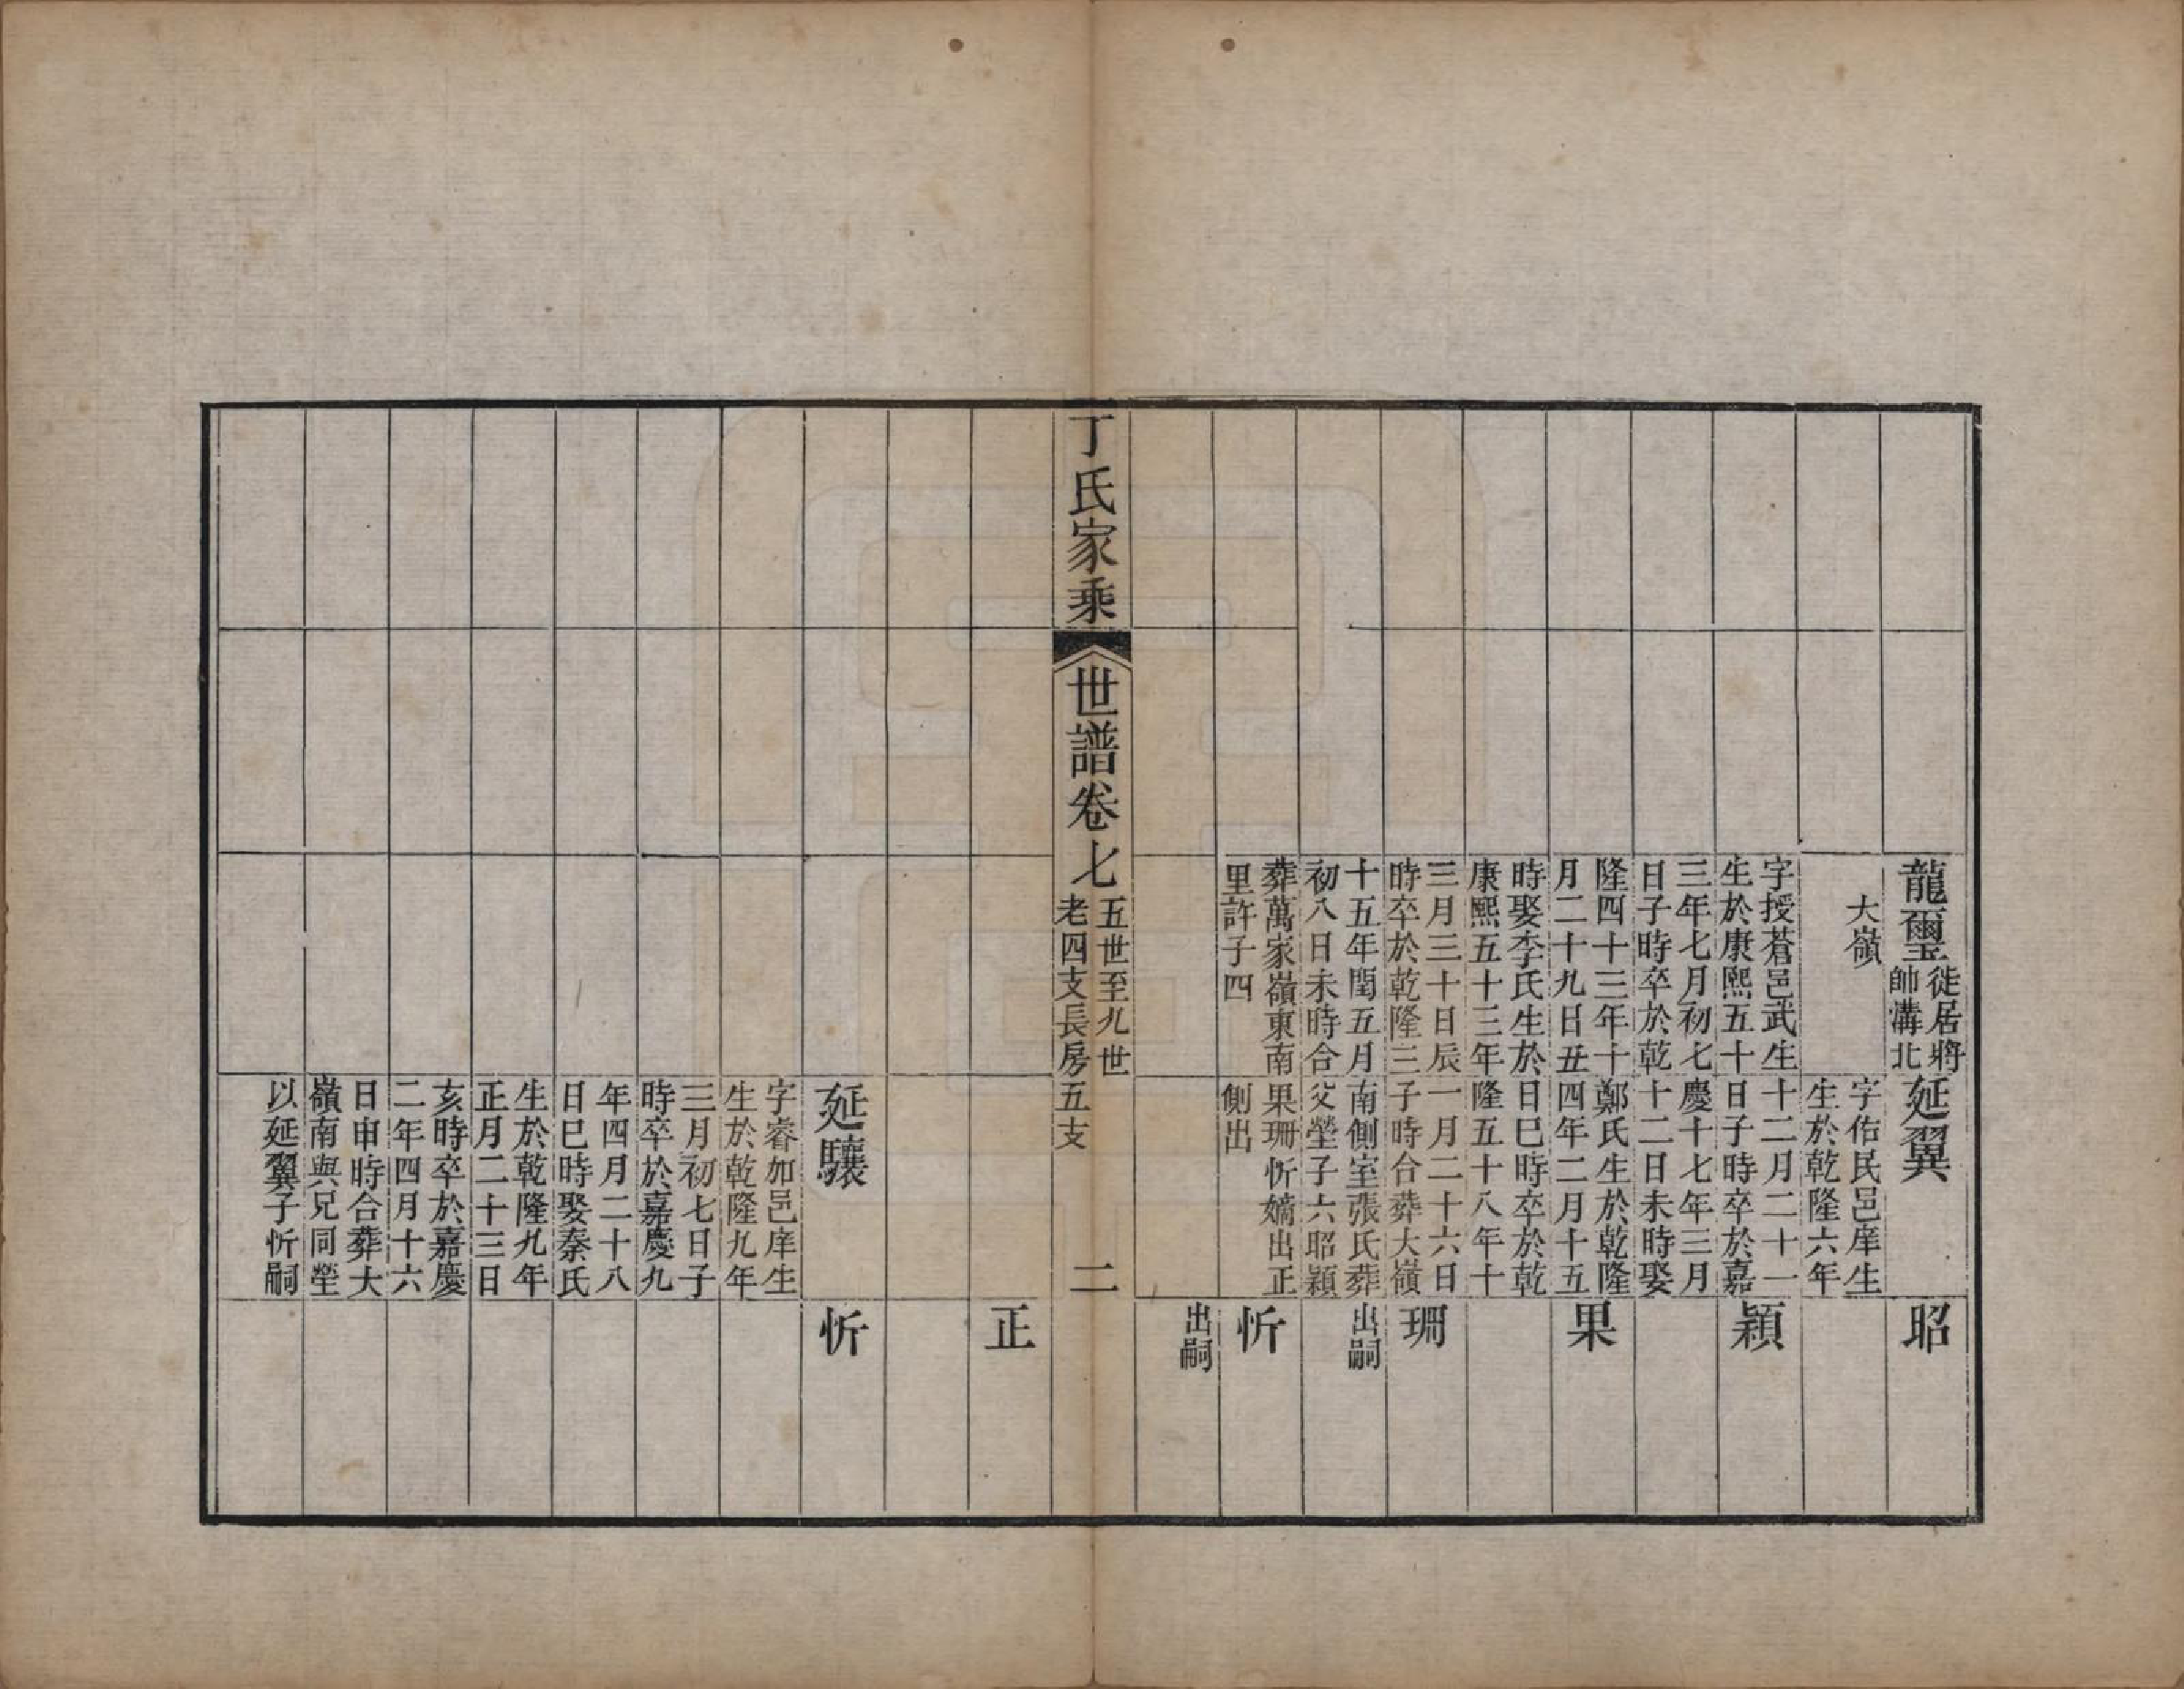 龍璽
徙居將
帥溝北
大嶺
字授蒼邑武生
生於康熙五十
三年七月初七
日子時卒於乾
隆四十三年十
月二十九日丑
時娶李氏生於
康熙五十三年
三月三十日辰
時卒於乾隆三
十五年閏五月
初八日未時合
葬萬家嶺東南
里許子四
延翼
字佑民邑庠生
生於乾隆六年
十二月二十一
日子時卒於嘉
慶十七年三月
十二日未時娶
鄭氏生於乾隆
四年二月十五
日巳時卒於乾
隆五十八年十
一月二十六日
子時合葬大嶺
南側室張氏葬
父塋子六昭穎
果珊忻嫡出正
側出
昭
穎
果
珊
出嗣
忻
出嗣
丁氏家乘
世譜卷七
五世至九世
老四支長房五支
二
正
延驤
字睿加邑庠生
生於乾隆九年
三月初七日子
時卒於嘉慶九
年四月二十八
日巳時娶秦氏
生於乾隆九年
正月二十三日
亥時卒於嘉慶
二年四月十六
日申時合葬大
嶺南與兄同塋
以延翼子忻嗣
忻